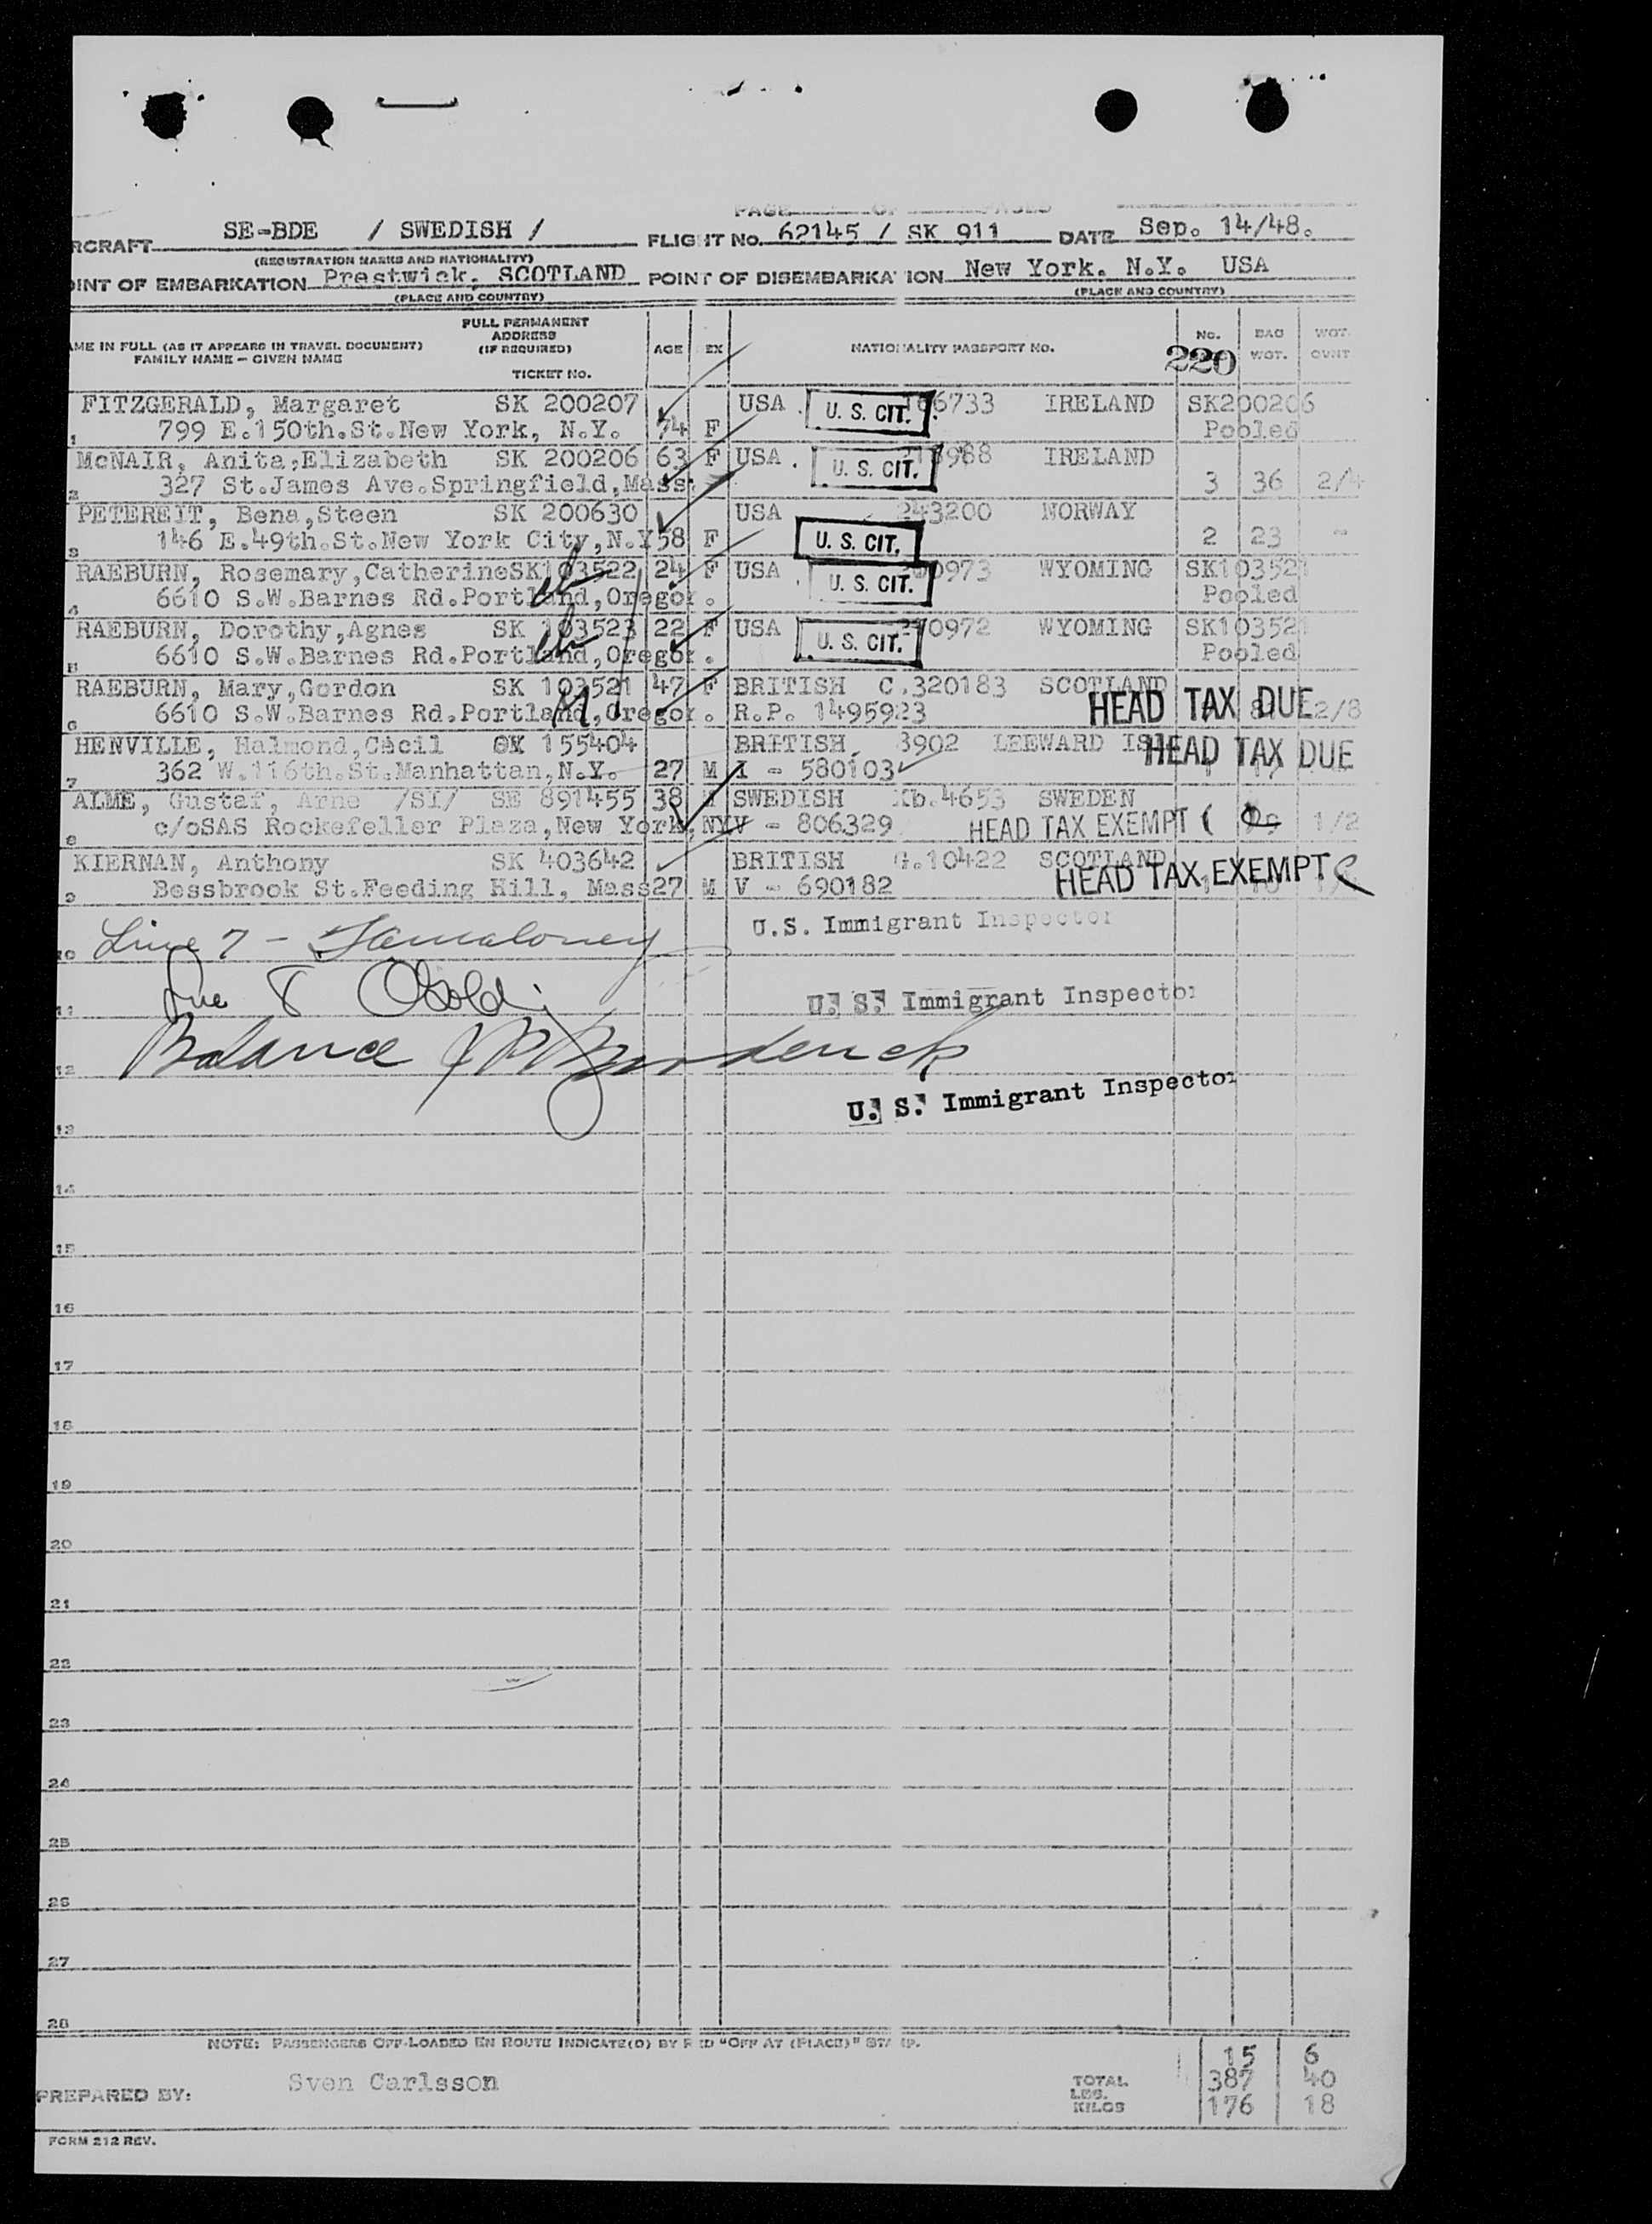 SE-BDE / SWEDISH /
RCRAFT FLIGHT No. 62145 / SK 911 DATE Sep. 14/48.
(REGISTRATION MARKS AND NATIONALITY)
OINT OF EMBARKATION Prestwick, SCOTLAND POINT OF DISEMBARKA ION New York. N.Y. USA
(PLACE AND COUNTRY) (PLACE AND COUNTRY)
AME IN FULL (AS IT APPEARS IN TRAVEL DOCUMENT) FULL PERMANENT ADDRESS (IF REQUIRED) AGE EX NATIONALITY PASSPORT No. No. BAG WGT. WGT. OVNT
FAMILY NAME – GIVEN NAME TICKET No. 220
FITZGERALD, Margaret SK 200207 USA. U. S. CIT. 6733 IRELAND SK200206
1 799 E.150th.St.New York, N.Y. 74 F Pooled
McNAIR, Anita,Elizabeth SK 200206 63 F USA. U. S. CIT. 988 IRELAND
2 327 St.James Ave.Springfield,Mass. 3 36 2/4
PETEREIT, Bena,Steen SK 200630 USA 243200 NORWAY
3 146 E.49th.St.New York City,N.Y 58 F U. S. CIT. 2 23 -
RAEBURN, Rosemary,CatherineSK103522 24 F USA U. S. CIT. 0973 WYOMING SK103521
4 6610 S.W.Barnes Rd.Portland,Oregon. Pooled
RAEBURN, Dorothy,Agnes SK 103523 22 F USA U. S. CIT. 0972 WYOMING SK103521
5 6610 S.W.Barnes Rd.Portland,Oregon. Pooled
RAEBURN, Mary,Gordon SK 103521 47 F BRITISH C.320183 SCOTLAND
6 6610 S.W.Barnes Rd.Portland,Oregon. R.P. 1495923 HEAD TAX DUE 2/8
HENVILLE, Halmond,Cecil SK 155404 BRITISH 3902 LEEWARD ISL HEAD TAX DUE
7 362 W.116th.St.Manhattan,N.Y. 27 M I - 580103
ALME, Gustaf, Arne /SI/ SE 891455 38 M SWEDISH Kb.4653 SWEDEN
8 c/oSAS Rockefeller Plaza,New York,NY V - 806329 HEAD TAX EXEMPT 1/2
KIERNAN, Anthony SK 403642 BRITISH G.10422 SCOTLAND
9 Bessbrook St.Feeding Hill, Mass 27 M V - 690182 HEAD TAX EXEMPT
U.S. Immigrant Inspector
10 Line 7 -
11 Line 8 U. S. Immigrant Inspector
12 Balance
U. S. Immigrant Inspector
13
14
15
16
17
18
19
20
21
22
23
24
25
26
27
28
NOTE: PASSENGERS OFF-LOADED EN ROUTE INDICATE(D) BY RED "OFF AT (PLACE)" STA IP.
15 6
PREPARED BY: Sven Carlsson TOTAL LBS. 387 40
KILOS 176 18
FORM 212 REV.